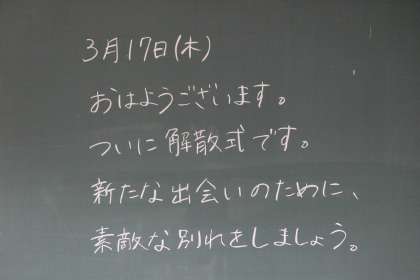 3月17日(木)
おはようございます。
ついに解散式です。
新たな出会いのために、
素敵な別れをしましょう。